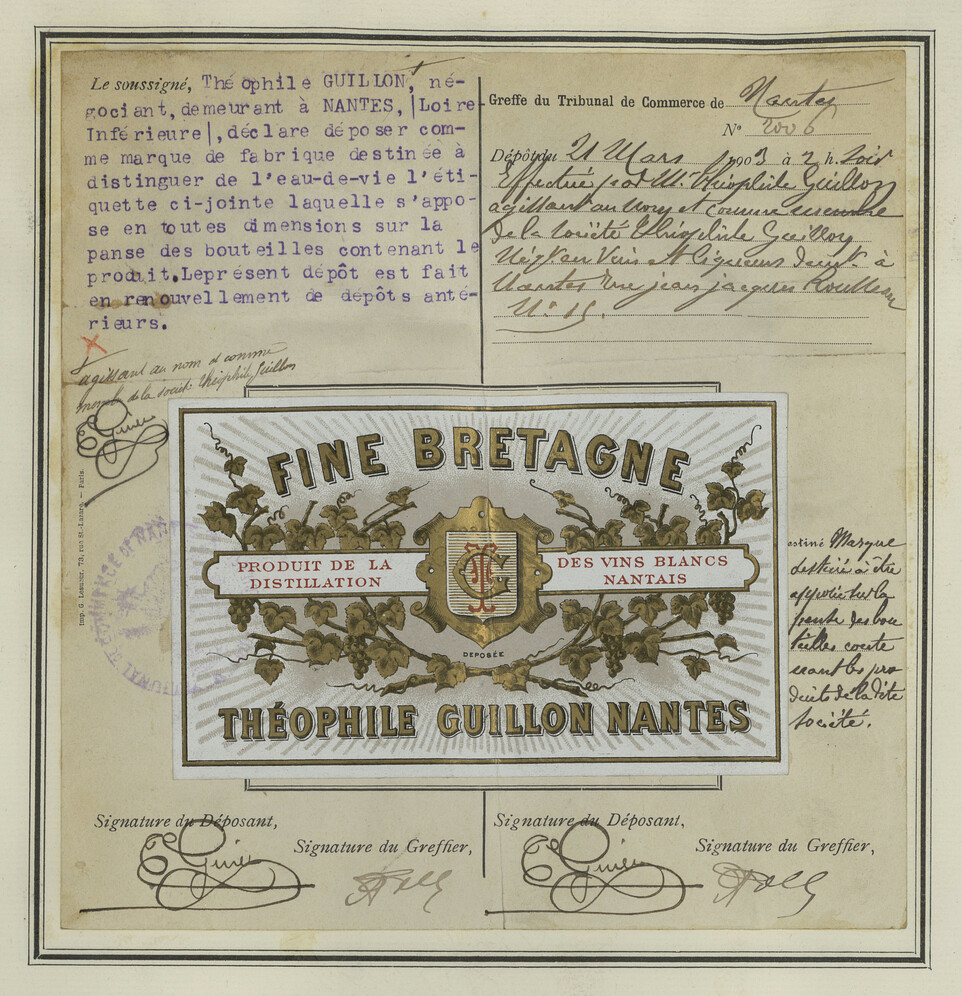 Le soussigné, Théophile GUILLON, né-
gociant, demeurant à NANTES, |Loire-
Inférieure|, déclare déposer com-
me marque de fabrique destinée à
distinguer de l'eau-de-vie l'éti-
quette ci-jointe laquelle s'appo-
se en toutes dimensions sur la
panse des bouteilles contenant le
produit. Leprésent dépôt est fait
en renouvellement de dépôts anté-
rieurs.
agissant au nom et comme
membre de la société Théophile Guillon
Greffe du Tribunal de Commerce de Nantes
N° 2006
Dépôt du 21 Mars 1903 à 2 h. Soir
Effectué par M. Théophile Guillon
agissant au nom et comme membre
de la Société Théophile Guillon
Négt en Vins et Liqueurs demt à
Nantes Rue jean jacques Rousseau
N° 15.
Imp. G. Lesueur, 73, rue St-Lazare. — Paris.
TRIBUNAL DE COMMERCE DE NANTES
FINE BRETAGNE
PRODUIT DE LA
DISTILLATION
DES VINS BLANCS
NANTAIS
DEPOSÉE
THÉOPHILE GUILLON NANTES
estiné Marque
destinée à être
apposée sur la
panse des bou
teilles conte
nant les pro
duits de la dite
Société.
Signature du Déposant,
Signature du Greffier,
Signature du Déposant,
Signature du Greffier,